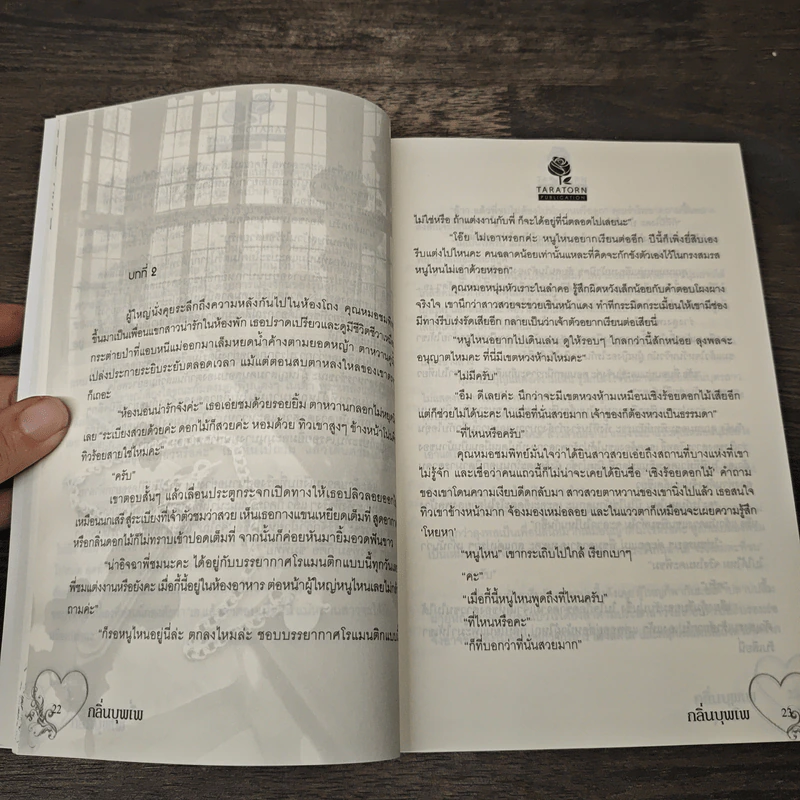 บทที่ 2
ผู้ใหญ่นั่งคุยระลึกถึงความหลังกันไปในห้องโถง คุณหมอชมพิทย์
ขึ้นมาเป็นเพื่อนแขกสาวน่ารักในห้องพัก เธอปราดเปรียวและดูมีชีวิตชีวาเหมือน
กระต่ายป่าที่แอบหนีแม่ออกมาเล็มหยดน้ำค้างตามยอดหญ้า ตาหวานคู่นั้น
เปล่งประกายระยิบระยับตลอดเวลา แม้แต่ตอนสบตาหลงใหลของเขา
ก็เถอะ
"ห้องนอนน่ารักจังค่ะ" เธอเอ่ยชมด้วยรอยยิ้ม ตาหวานกลอกไม่หยุด
เลย "ระเบียงสวยด้วยค่ะ ดอกไม้ก็สวยค่ะ หอมด้วย ทิวเขาสูงๆ ข้างหน้า
ทิวร้อยสายใช่ไหมคะ"
"ครับ"
เขาตอบสั้นๆ แล้วเลื่อนประตูกระจกเปิดทางให้เธอปลิวลอยออก
เหมือนนกเสรี สู่ระเบียงที่เจ้าตัวชมว่าสวย เห็นเธอกางแขนเหยียดเต็มที่ สูดอากาศ
หรือกลิ่นดอกไม้ก็ไม่ทราบเข้าปอดเต็มที่ จากนั้นก็ค่อยหันมายิ้มอวดฟันขาว
"น่าอิจฉาพี่ชมนะคะ ได้อยู่กับบรรยากาศโรแมนติกแบบนี้ทุกวัน
พี่ชมแต่งงานหรือยังคะ เมื่อกี้นี้อยู่ในห้องอาหาร ต่อหน้าผู้ใหญ่หนูไหนเลยไม่กล้า
ถามค่ะ"
"ก็รอหนูไหนอยู่นี่ล่ะ ตกลงไหมล่ะ ชอบบรรยากาศโรแมนติกแบบนี้
22
กลิ่นบุพเพ
TARATORN
PUBLICATION
ไม่ใช่หรือ ถ้าแต่งงานกับพี่ ก็จะได้อยู่ที่นี่ตลอดไปเลยนะ"
"โอ๊ย ไม่เอาหรอกค่ะ หนูไหนอยากเรียนต่ออีก ปีนี้ก็เพิ่งยี่สิบเอง
รีบแต่งไปไหนคะ คนฉลาดน้อยเท่านั้นแหละที่คิดจะกักขังตัวเองไว้ในกรงสมรส
หนูไหนไม่เอาด้วยหรอก"
คุณหมอหนุ่มหัวเราะในลำคอ รู้สึกผิดหวังเล็กน้อยกับคำตอบโผงผาง
จริงใจ เขานึกว่าสาวสวยจะขวยเขินหน้าแดง ทำทีกระมิดกระเมี้ยนให้เขามีช่อง
มีทางรีบเร่งรัดเสียอีก กลายเป็นว่าเจ้าตัวอยากเรียนต่อเสียนี่
"หนูไหนอยากไปเดินเล่น ดูให้รอบๆ ไกลกว่านี้สักหน่อย ลุงพลจะ
อนุญาตไหมคะ ที่นี่มีเขตหวงห้ามไหมคะ"
"ไม่มีครับ"
"อืม ดีเลยค่ะ นึกว่าจะมีเขตหวงห้ามเหมือนเชิงร้อยดอกไม้เสียอีก
แต่ก็ช่วยไม่ได้นะคะ ในเมื่อที่นั่นสวยมาก เจ้าของก็ต้องหวงเป็นธรรมดา"
"ที่ไหนหรือครับ"
คุณหมอชมพิทย์มั่นใจว่าได้ยินสาวสวยเอ่ยถึงสถานที่บางแห่งที่เขา
ไม่รู้จัก และเชื่อว่าคนแถวนี้ก็ไม่น่าจะเคยได้ยินชื่อ 'เชิงร้อยดอกไม้' คำถาม
ของเขาโดนความเงียบดีดกลับมา สาวสวยตาหวานของเขานิ่งไปแล้ว เธอสนใจ
ทิวเขาข้างหน้ามาก จ้องมองเหม่อลอย และในแววตาก็เหมือนจะเผยความรู้สึก
'โหยหา'
"หนูไหน" เขากระเถิบไปใกล้ เรียกเบาๆ
"คะ"
"เมื่อกี้นี้หนูไหนพูดถึงที่ไหนครับ"
"ที่ไหนหรือคะ"
"ก็ที่บอกว่าที่นั่นสวยมาก"
กลิ่นบุพเพ
23